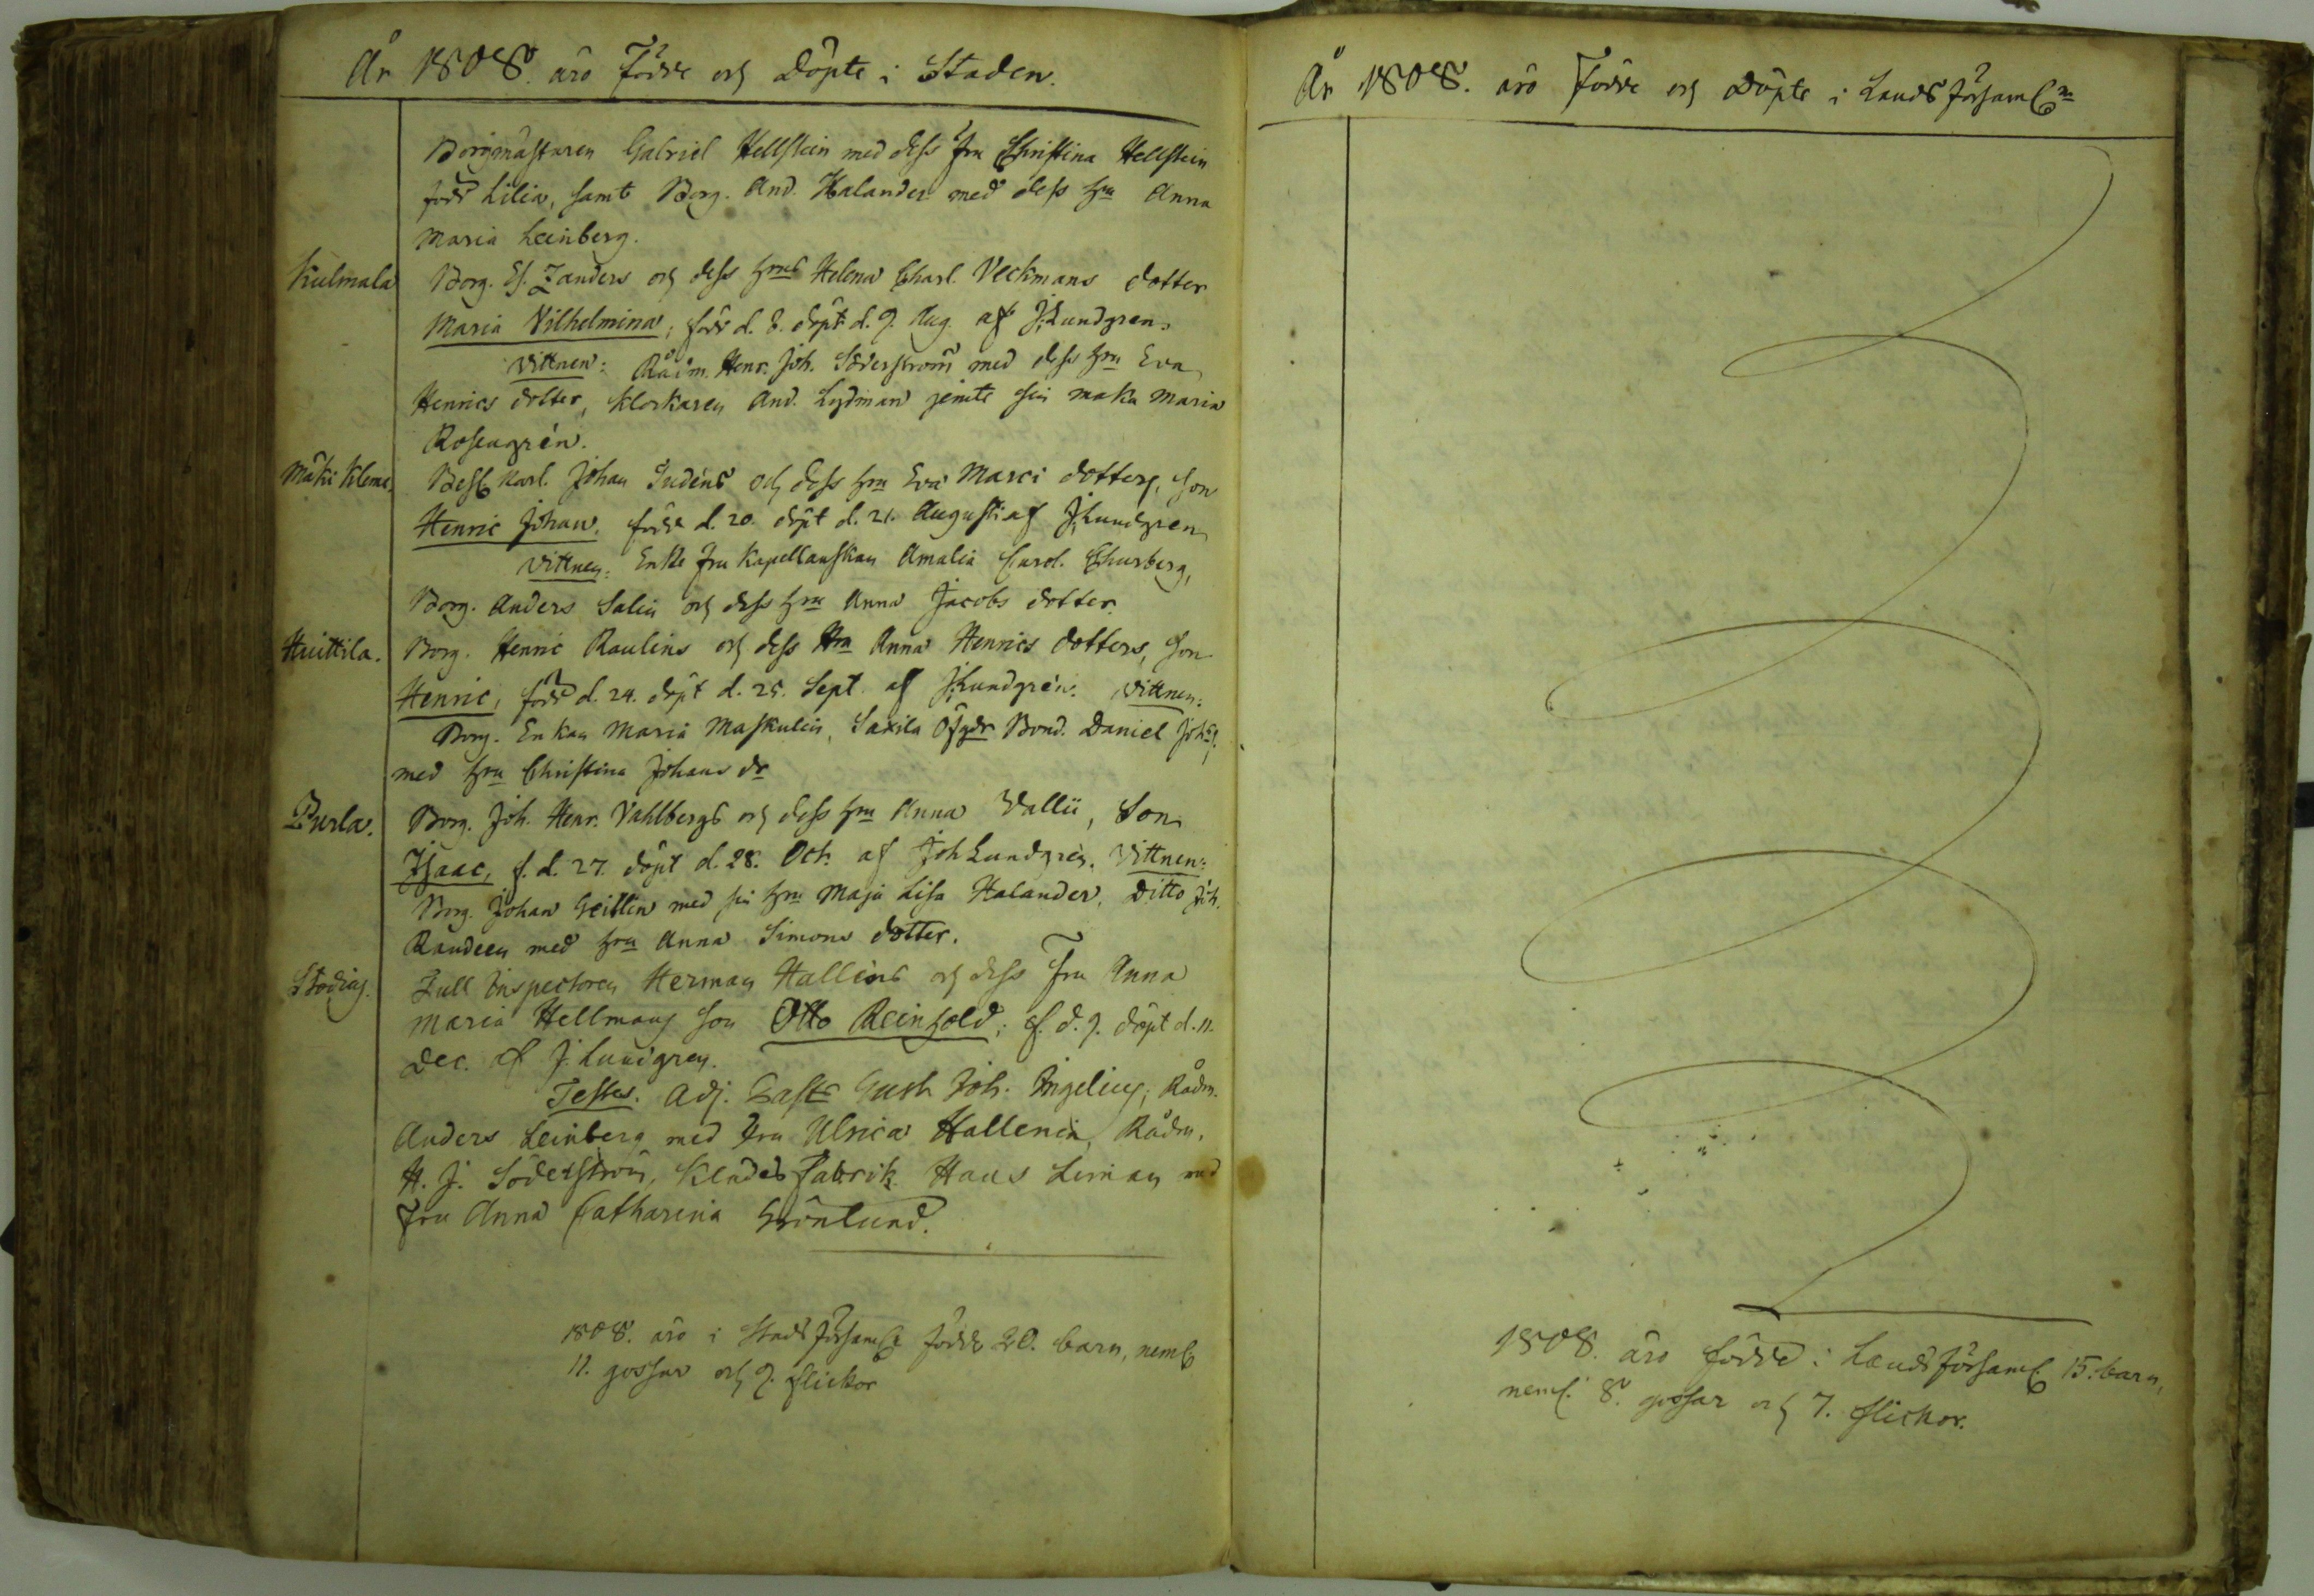 År 1808. äro Födde och Döpte i Staden.
Borgmästaren Gabriel Hellstein med dess Fru Christina Hellstein
född Lilia, samt Borg. And. Halander med dess hru Anna
Maria Leinberg.
Kulmala Borg. Es. Zanders och dess hrus Helena Charl. Veckmans dotter
Maria Vilhelmina, född d. 8. döpt d. 9. Aug. af J. Lundgren.
Vittnen: Rådm. Henr. Joh. Söderström med dess hru Eva
Henrics dotter, klockaren And. Lydman jemte sin maka Maria
Rosengrén.
Mäki Klema. Karl. Johan Sudéns och dess hru Eva Marci dotters, son
Henric Johan, född d. 20. döpt d. 21. Augusti af J. Lundgren
Vittnen: Enke Fru Kapellanskan Amalia Carol. Churberg,
Borg. Anders Salin och dess hru Anna Jacobs dotter.
Huittila. Borg. Henric Raulins och dess Hru Anna Henrics dotters, son
Henric, född d. 24. döpt d. 25. Sept. af J. Lundgrén. Vittnen:
Borg. Enkan Maria Maskulin, Saxila Bond. Daniel Johs.
med hru Christina Johans dr
Purla. Borg. Joh. Henr. Vahlbergs och dess hru Anna Vallii, Son
Isaac, f. d. 27. döpt d. 28. Oct. af Joh Lundgrén. Vittnen:
Borg. Johan Geitlin med sin hru Maja Lisa Halander, Ditto Joh.
Randeen med hru Anna Simons dotter.
Tull Inspectoren Herman Halléns och dess Fru Anna
Maria Hellmans son Otto Reinhold, f. d. 9. döpt d. 11.
Dec. af J. Lundgren.
Testes. Adj. Gust. Joh. Ingelius, Rådm.
Anders Leinberg med Fru Ulrica Hallenia, Rådm.
H. J. Söderström, Klädes fabrik. Hans Liman med
Fru Anna Catharina Grönlund.
1808. äro i Stads församl. födde 20. barn, neml.
11. gossar och 9. flickor
År 1808. äro Födde och Döpte i Lands församl:n
1808. äro födde i Lands församl. 15. barn,
neml. 8. gossar och 7. flickor.